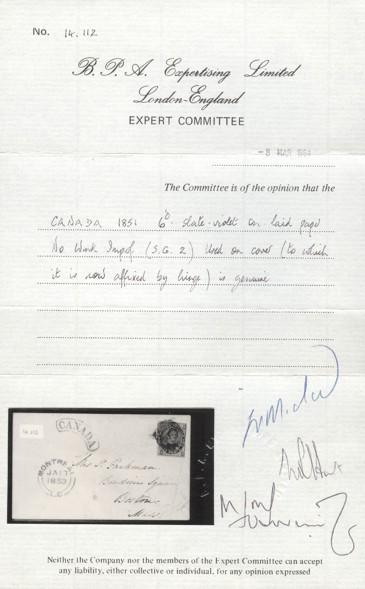 No. 14.112
B. P. A. Expertising Limited
London-England
EXPERT COMMITTEE
-8 MAR
The Committee is of the opinion that the
CANADA 1851 6d. slate-violet on laid paper
No Wmk Imperf (S.G. 2) Used on cover (to which
it is now affixed by hinge) is genuine
CANADA
MONTREAL
JA 17
1853
Mrs.
Boston
Mass
Neither the Company nor the members of the Expert Committee can accept
any liability, either collective or individual, for any opinion expressed